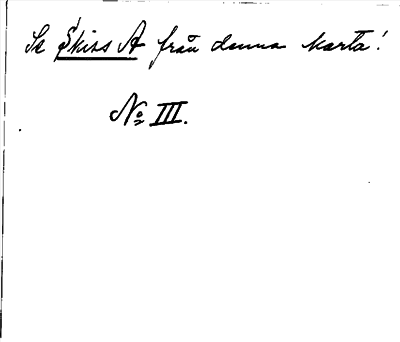 Se Skiss A från denna karta!
No III.